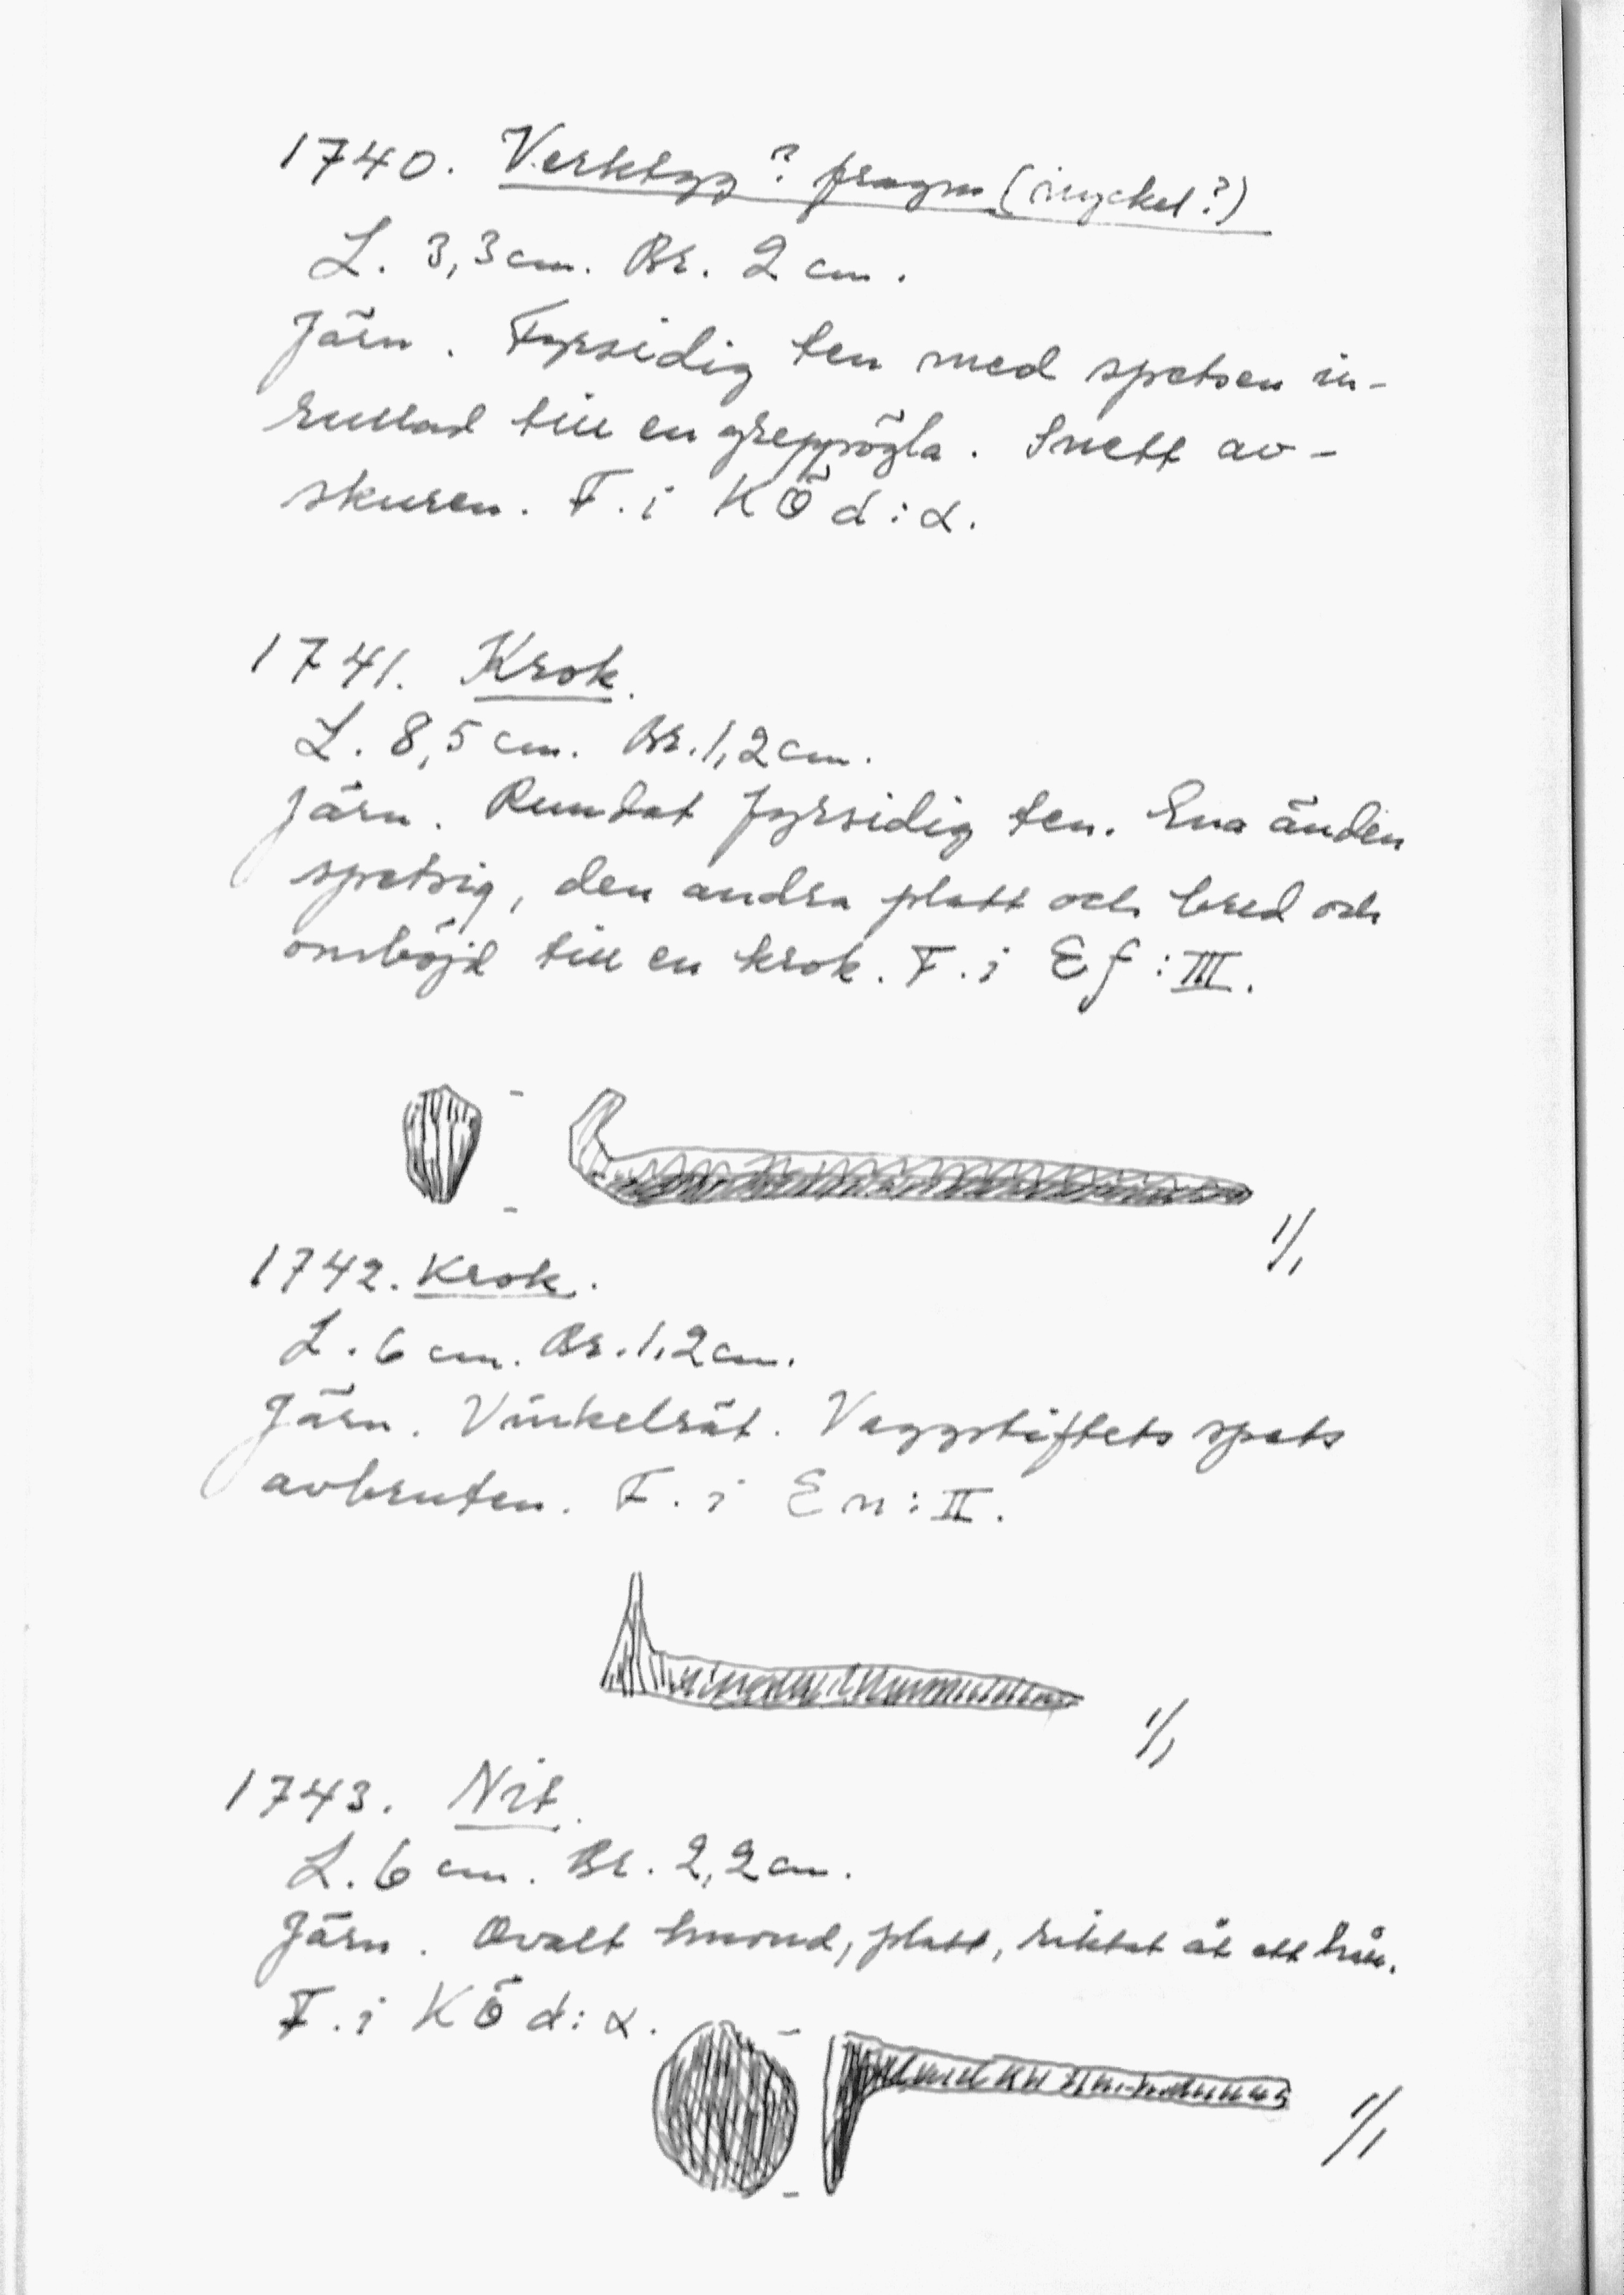 1740. Verktyg? fragm (nyckel?)
L. 3,3 cm. Br. 2 cm.
Järn. Fyrsidig ten med spetsen in-
rullad till en greppögla. Snett av-
skuren. F. i KÖ d:α.
1741. Krok.
L. 8,5 cm. Br. 1,2 cm.
Järn. Rundat fyrsidig ten. Ena änden
spetsig, den andra platt och bred och
omböjd till en krok. F. i Ef:III.
1/1
1742. Krok.
L. 6 cm. Br. 1,2 cm.
Järn. Vinkelrät. Väggstiftets spets
avbruten. F. i En:II.
1/1
1743. Nit.
L. 6 cm. Br. 2,2 cm.
Järn. Ovalt huvud, platt, riktat åt ett håll.
F. i KÖ d:α.
1/1